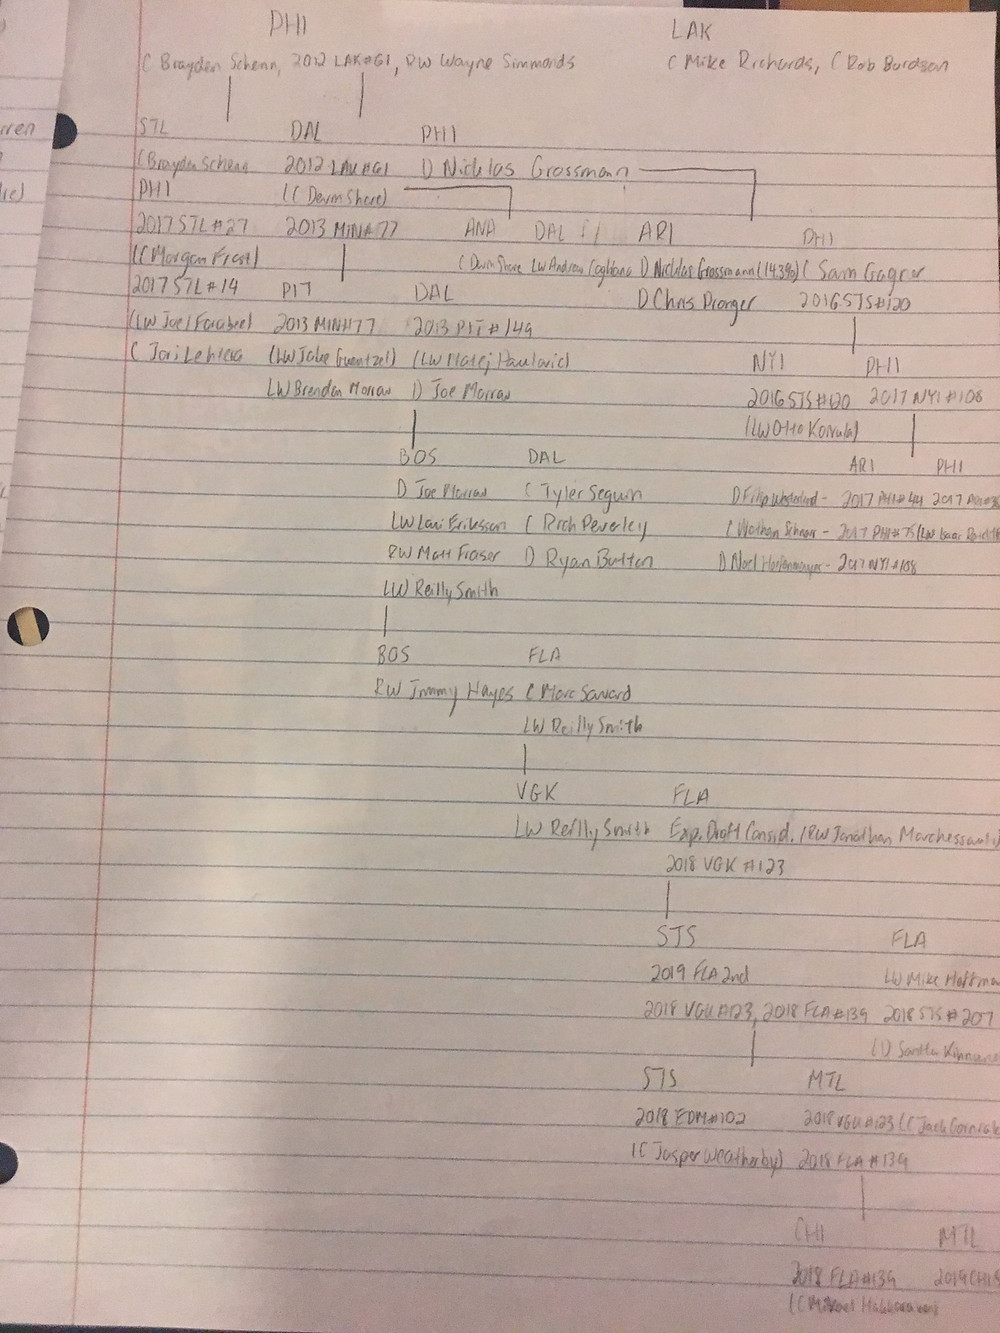 PHI LAK
C Brayden Schenn, 2012 LAK#61, RW Wayne Simmonds C Mike Richards, C Rob Bordson
STL DAL PHI
C Brayden Schenn 2012 LAK#61 D Nicklas Grossmann
PHI (C Devin Shore)
2017 STL#27 2013 MIN#77 ANA DAL ARI PHI
(C Morgan Frost) C Devin Shore LW Andrew Cogliano D Nicklas Grossmann (14.3%) C Sam Gagner
2017 STL#14 PIT DAL D Chris Pronger 2016 STS#120
(LW Joel Farabee) 2013 MIN#77 2013 PIT#149
C Jori Lehtera (LW Jake Guentzel) (LW Matej Paulovic) NYI PHI
LW Brendan Morrow D Joe Morrow 2016 STS#120 2017 NYI#108
(LW Otto Koivula)
BOS DAL ARI PHI
D Joe Morrow C Tyler Seguin D Filip Westerlund - 2017 PHI#44 2017
LW Loui Eriksson C Rich Peverley - 2017 PHI#75
RW Matt Fraser D Ryan Button D Noel Hoefenmayer - 2017 NYI#108
LW Reilly Smith
BOS FLA
RW Jimmy Hayes C Marc Savard
LW Reilly Smith
VGK FLA
LW Reilly Smith Exp. Draft Consid. (RW Jonathan Marchessault)
2018 VGK #123
STS FLA
2019 FLA 2nd LW Mike Hoffma
2018 VGK#123, 2018 FLA#139 2018 STS#207
STS MTL
2018 EDM#102 2018 VGK#123 (C Jack
(C Jasper Weatherby) 2018 FLA#139
CHI MTL
2018 FLA#139 2019 CHI